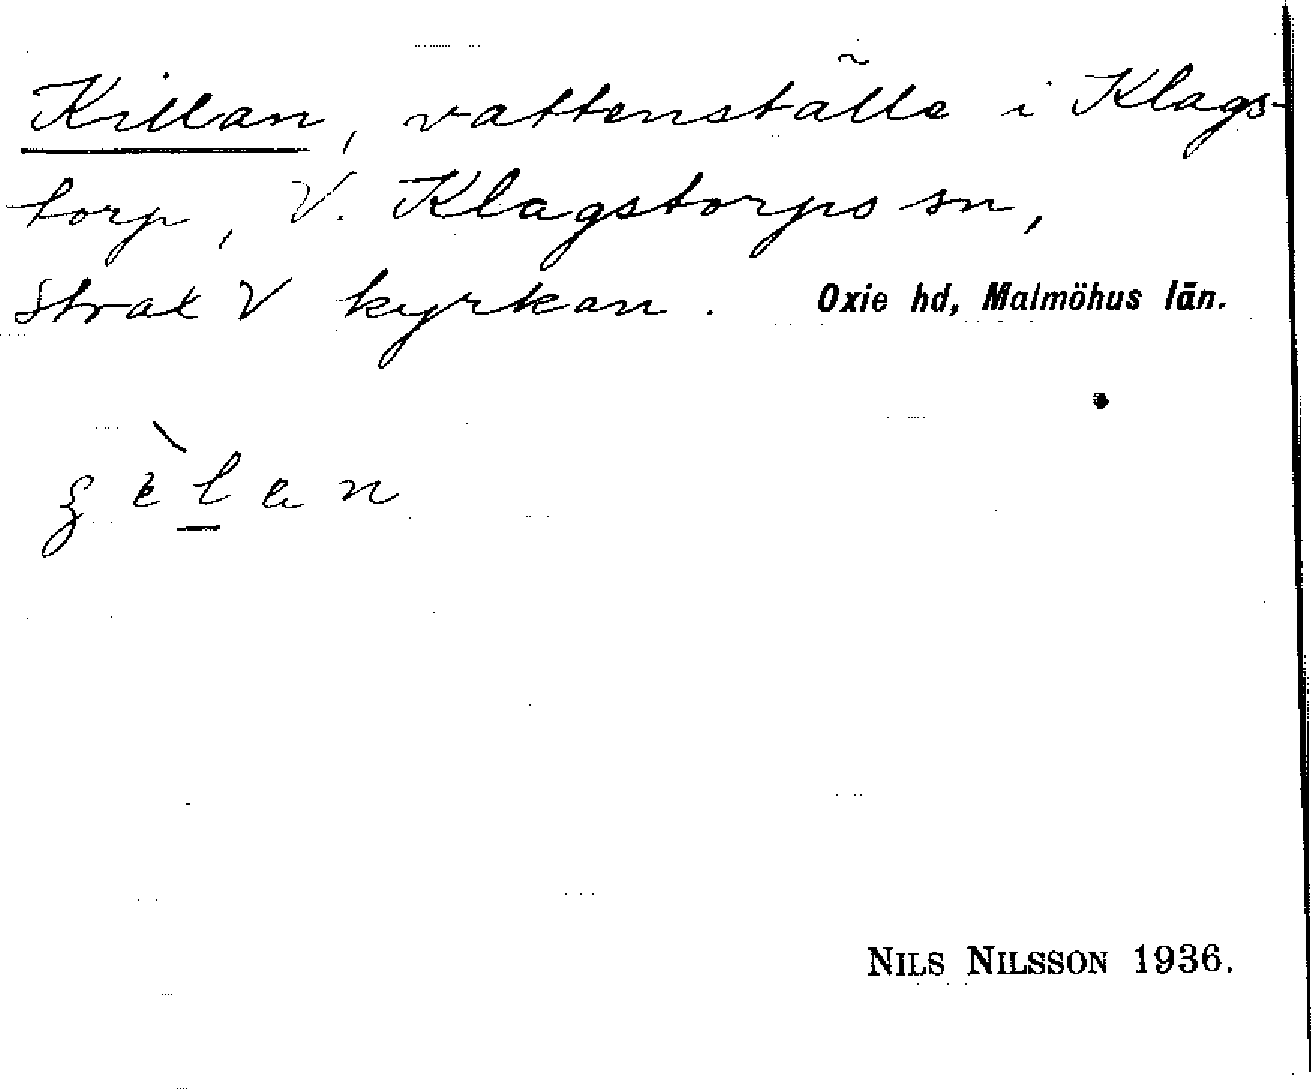 Killan, vattenställe i Klags-
torp, V. Klagstorps sn,
strax V kyrkan. Oxie hd, Malmöhus län.
NILS NILSSON 1936.